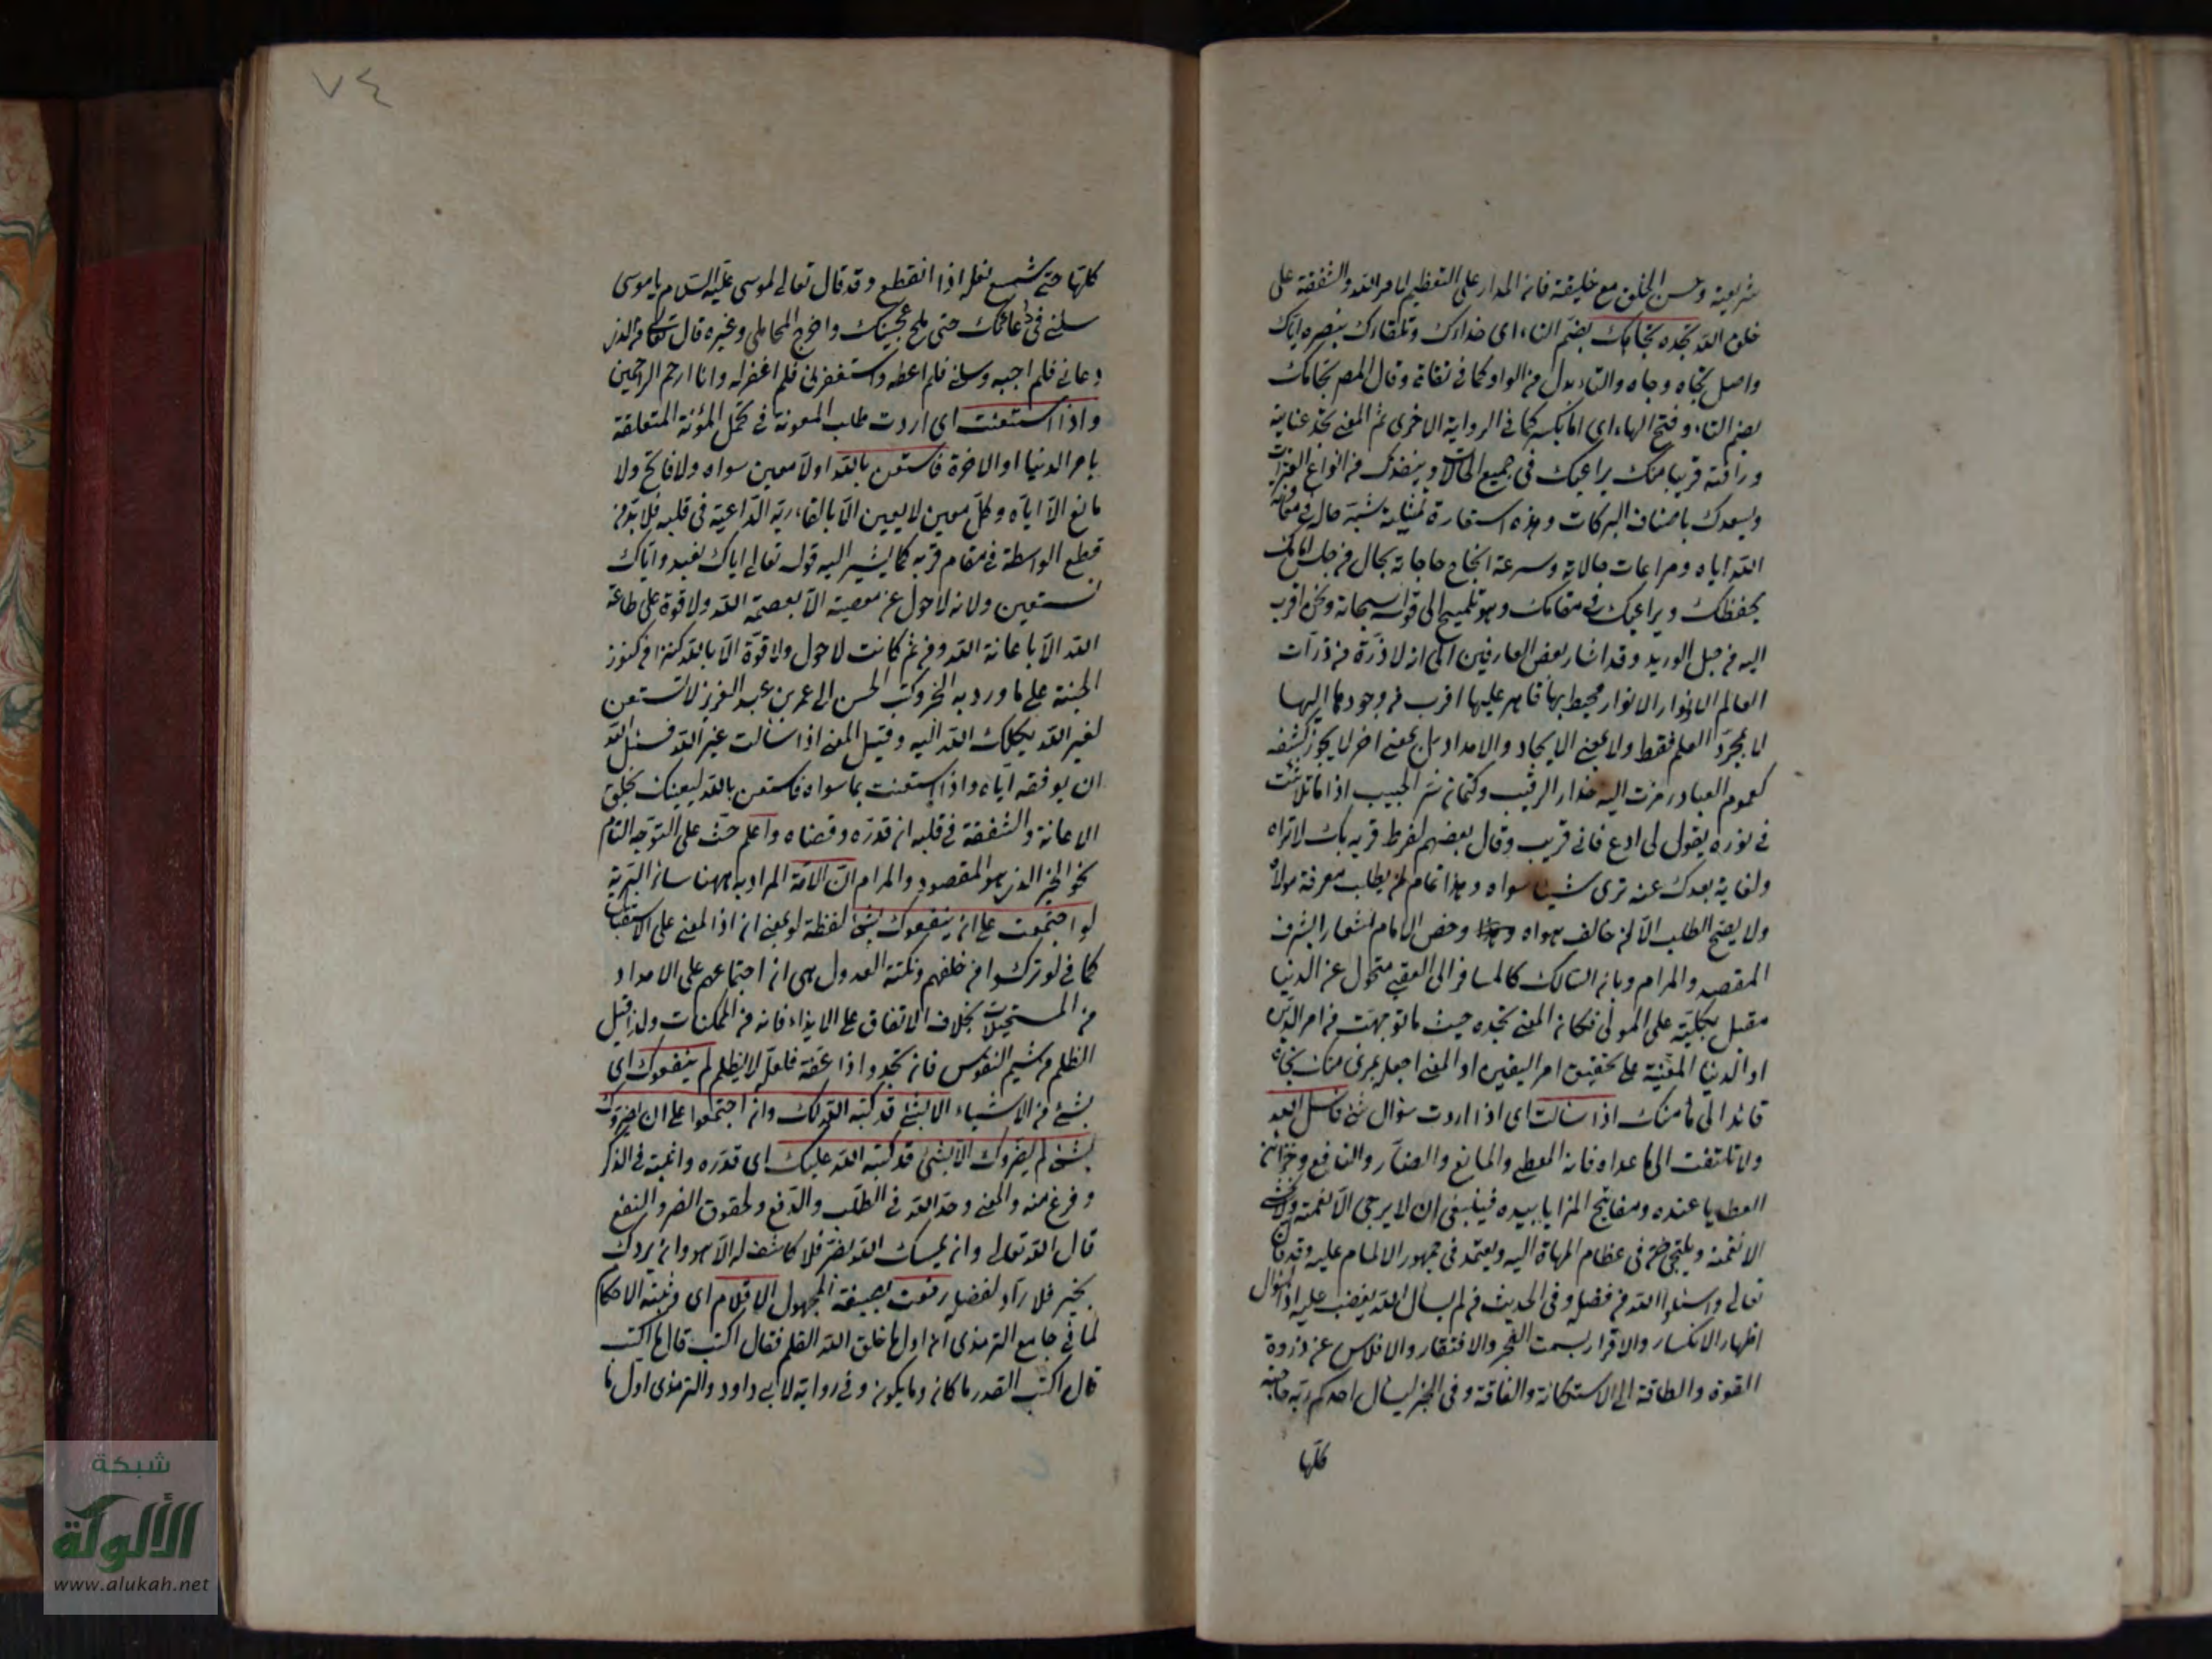 شريعته وحسن الخلق مع خليقته فان المدار على التعظيم لامر الله والشفقة على
خلق الله تجده تجاهك بضم التاء اى حذاءك وتلقاءك بنصره اياك
واصل تجاه وجاه والتاء بدل من الواو كما فى تقاة وقال المص تجاهك
بضم التاء وفتح الهاء اى امامك كما فى الرواية الاخرى ثم المعنى تجد عنايته
ورأفته قريبا منك يراعيك فى جميع الحالات وينقذك من انواع
ويسعدك باصناف البركات وهذه استعارة تمثيلية شبه حاله فى
الله اياه ومراعات حالاته وسرعة انجاح حاجاته بحال من جلس امامك
يحفظك ويراعيك فى مقامك وهو تلميح الى قوله سبحانه ونحن اقرب
اليه من حبل الوريد وقد اشار بعض العارفين الى انه لا ذرة من ذرات
العالم الا ونور الانوار محيط بها قاهر عليها اقرب من وجودها اليها
لا بمجرد العلم فقط ولا بمعنى الايجاد والامداد بل بمعنى اخر لا يجوز كشفه
لعموم العباد رمزت اليه حذار الرقيب وكتمان سر الحبيب اذا ما تلاشت
فى نوره يقول لى ادع فانى قريب وقال بعضهم لفرط قربه بك لا تراه
ولغاية بعدك عنه ترى شيئا سواه وهذا تمام لمن يطلب معرفة مولاه
ولا يصح الطلب الا لمن خالف هواه وخص الامام لشعار الشرف
المقصد والمرام وبان السالك كالمسافر الى العقبى متحول عن الدنيا
مقبل بكليته على المولى فكان المعنى تجده حيث ما توجهت من امر الدين
او الدنيا المعنية على تحقيق امر اليقين او المعنى اجعله بمرئ منك تجاه
قائدا الى مأمنك اذا سألت اى اذا اردت سؤال شئ فاسأل الله
ولا تلتفت الى ما عداه فانه المعطى والمانع والضار والنافع وخزائن
العطايا عنده ومفاتيح المزايا بيده فينبغى ان لا يرجى الا نعمته ولا يخشى
الا نقمته ويلتجئ فى عظام المهام اليه ويعتمد فى جمهور الالمام عليه وقد قال
تعالى واسئلوا الله من فضله وفى الحديث من لم يسأل الله يغضب عليه اذ السؤال
اظهار الانكسار والاقرار بسمت العجز والافتقار والافلاس عن ذروة
القوة والطاقة الى الاستكانة والفاقة وفى الخبر ليسأل احدكم ربه حاجته
كلها
٧٤
كلها حتى شسع نعله اذا انقطع وقد قال تعالى لموسى عليه السلام يا موسى
سلنى فى دعائك حتى ملح عجينك واخرج المحاملى وغيره قال تعالى من الذى
دعانى فلم اجبه وسألنى فلم اعطه واستغفرنى فلم اغفر له وانا ارحم الراحمين
واذا استعنت اى اردت طلب المعونة فى تحمل المؤنة المتعلقة
بامر الدنيا او الاخرة فاستعن بالله اذ لا معين سواه ولا فاتح ولا
مانع الا اياه وكل معين لا يعين الا بالقاء ربه الداعية فى قلبه فلا بد من
قطع الواسطة فى مقام قربه كما يشير اليه قوله تعالى اياك نعبد واياك
نستعين ولانه لا حول عن معصية الا بعصمة الله ولا قوة على طاعة
الله الا باعانة الله ومن ثم كانت لا حول ولا قوة الا بالله كنزا من كنوز
الجنة على ما ورد به الخبر وكتب الحسن الى عمر بن عبد العزيز لا تستعن
لغير الله يكلك الله اليه وقيل المعنى اذا سألت غير الله فسئل الله
ان يوفقه اياه واذا استعنت بما سواه فاستعن بالله ليعينك بخلق
الاعانة والشفقة فى قلبه ان قدره وقضاه واعلم حث على التوجه التام
نحو الخبر الذى هو المقصود والمرام ان الامة المراد به ههنا سائر البرية
لو اجتمعت على ان ينفعوك بشئ لفظة لو بمعنى ان اذ المعنى على الاستقبال
كما فى لو تركوا من خلفهم ونكتة العدول هى ان اجتماعهم على الامداد
من المستحيلات بخلاف الاتفاق على الايذاء فانه من الممكنات ولذا قيل
الظلم من شيم النفوس فان تجد واذا عفة فلعلة لا يظلم لم ينفعوك اى
بشئ من الاشياء الا بشئ قد كتبه الله لك وان اجتمعوا على ان يضروك
بشئ لم يضروك الا بشئ قد كتبه الله عليك اى قدره واثبته فى الذكر
وفرغ منه والمعنى وحد الله فى الطلب والدفع ولحقوق الضر والنفع
قال الله تعالى وان يمسسك الله بضر فلا كاشف له الا هو وان يردك
بخير فلا راد لفضله رفعت بصيغة المجهول الاقلام اى من ثبته الاحكام
لما فى جامع الترمذى ان اول ما خلق الله القلم فقال اكتب قال ما اكتب
قال اكتب القدر ما كان وما يكون وفى رواية لابى داود والترمذى اول ما
شبكة
الألوكة
www.alukah.net